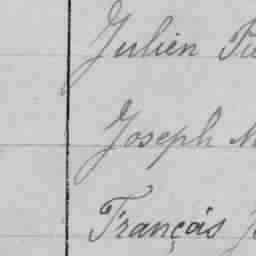 Julien
Joseph
François